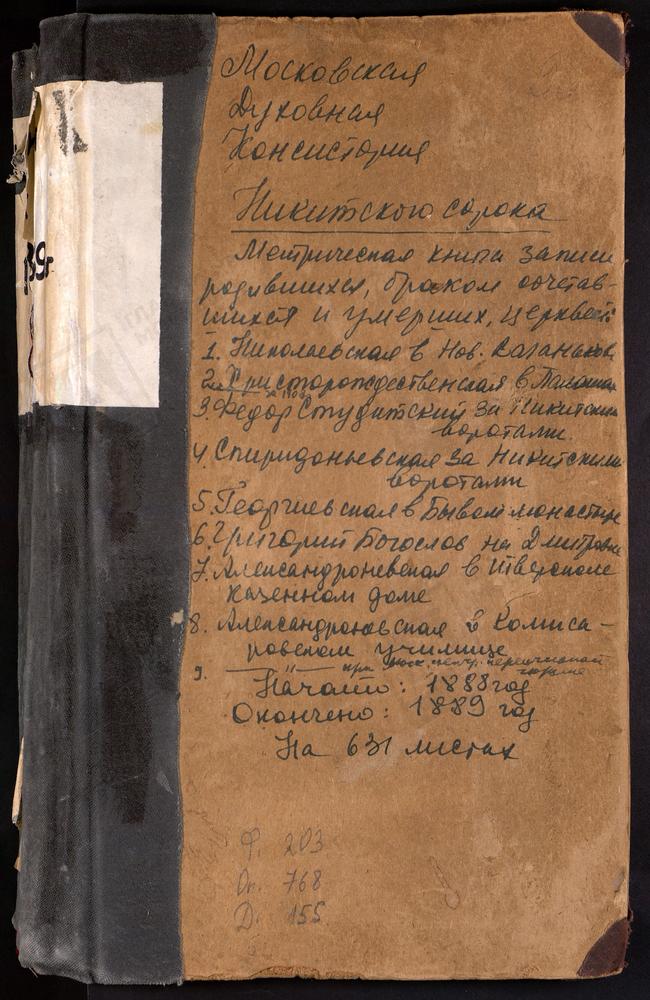 Московская
Духовная
Консистория
Никитского сорока
Метрическая книга записи
родившихся, браком сочетав-
шихся и умерших, церквей:
1. Николаевская в Нов. Ваганьков
2. Христорождественская в Палашах
3. Федор Студитский за Никитскими
воротами.
4. Спиридоньевская за Никитскими
воротами
5. Георгиевская в бывшем монастыре
6. Григорий Богослов на Дмитровке
7. Александроневская в Тверском
казенном доме
8. Александроневская в Комиса-
ровском училище
9. —— " —— при моск. центр. пересыльной
тюрьме
Начато: 1888 год
Окончено: 1889 год
На 631 листах
Ф. 203
Оп. 768
Д. 155